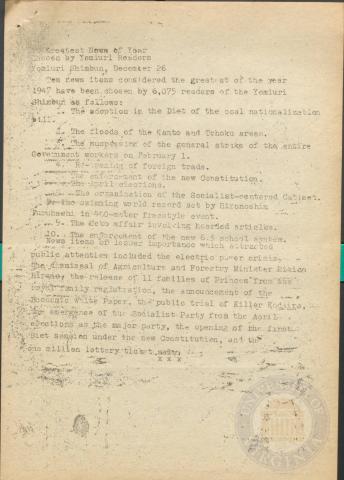 Greatest News of Year
Chosen by Yomiuri Readers
Yomiuri Shimbun, December 26
Ten news items considered the greatest of the year
1947 have been chosen by 6,075 readers of the Yomiuri
Shimbun as follows:
1. The adoption in the Diet of the coal nationalization
bill.
2. The floods of the Kanto and Tohoku areas.
3. The suspension of the general strike of the entire
Government workers on February 1.
4. Re-opening of foreign trade.
The enforcement of the new Constitution.
The April elections.
The organization of the Socialist-centered Cabinet.
swimming world record set by Hironoshin
Furuhashi in 400-meter freestyle event.
9. The affair involving hoarded articles.
10. The enforcement of the new 6.3 school system.
News items of lesser importance which attracted
public attention included the electric power crisis,
the dismissal of Agriculture and Forestry Minister Rikizo
Hirano, the release of 11 families of Princes from the
royal family registration, the announcement of the
Economic White Paper, the public trial of Killer Kodaira,
emergence of the Socialist Party from the April
elections as the major party, the opening of the first
Diet session under the new Constitution, and the
one million lottery ticket
x x x
UNIVERSITY OF VIRGINIA